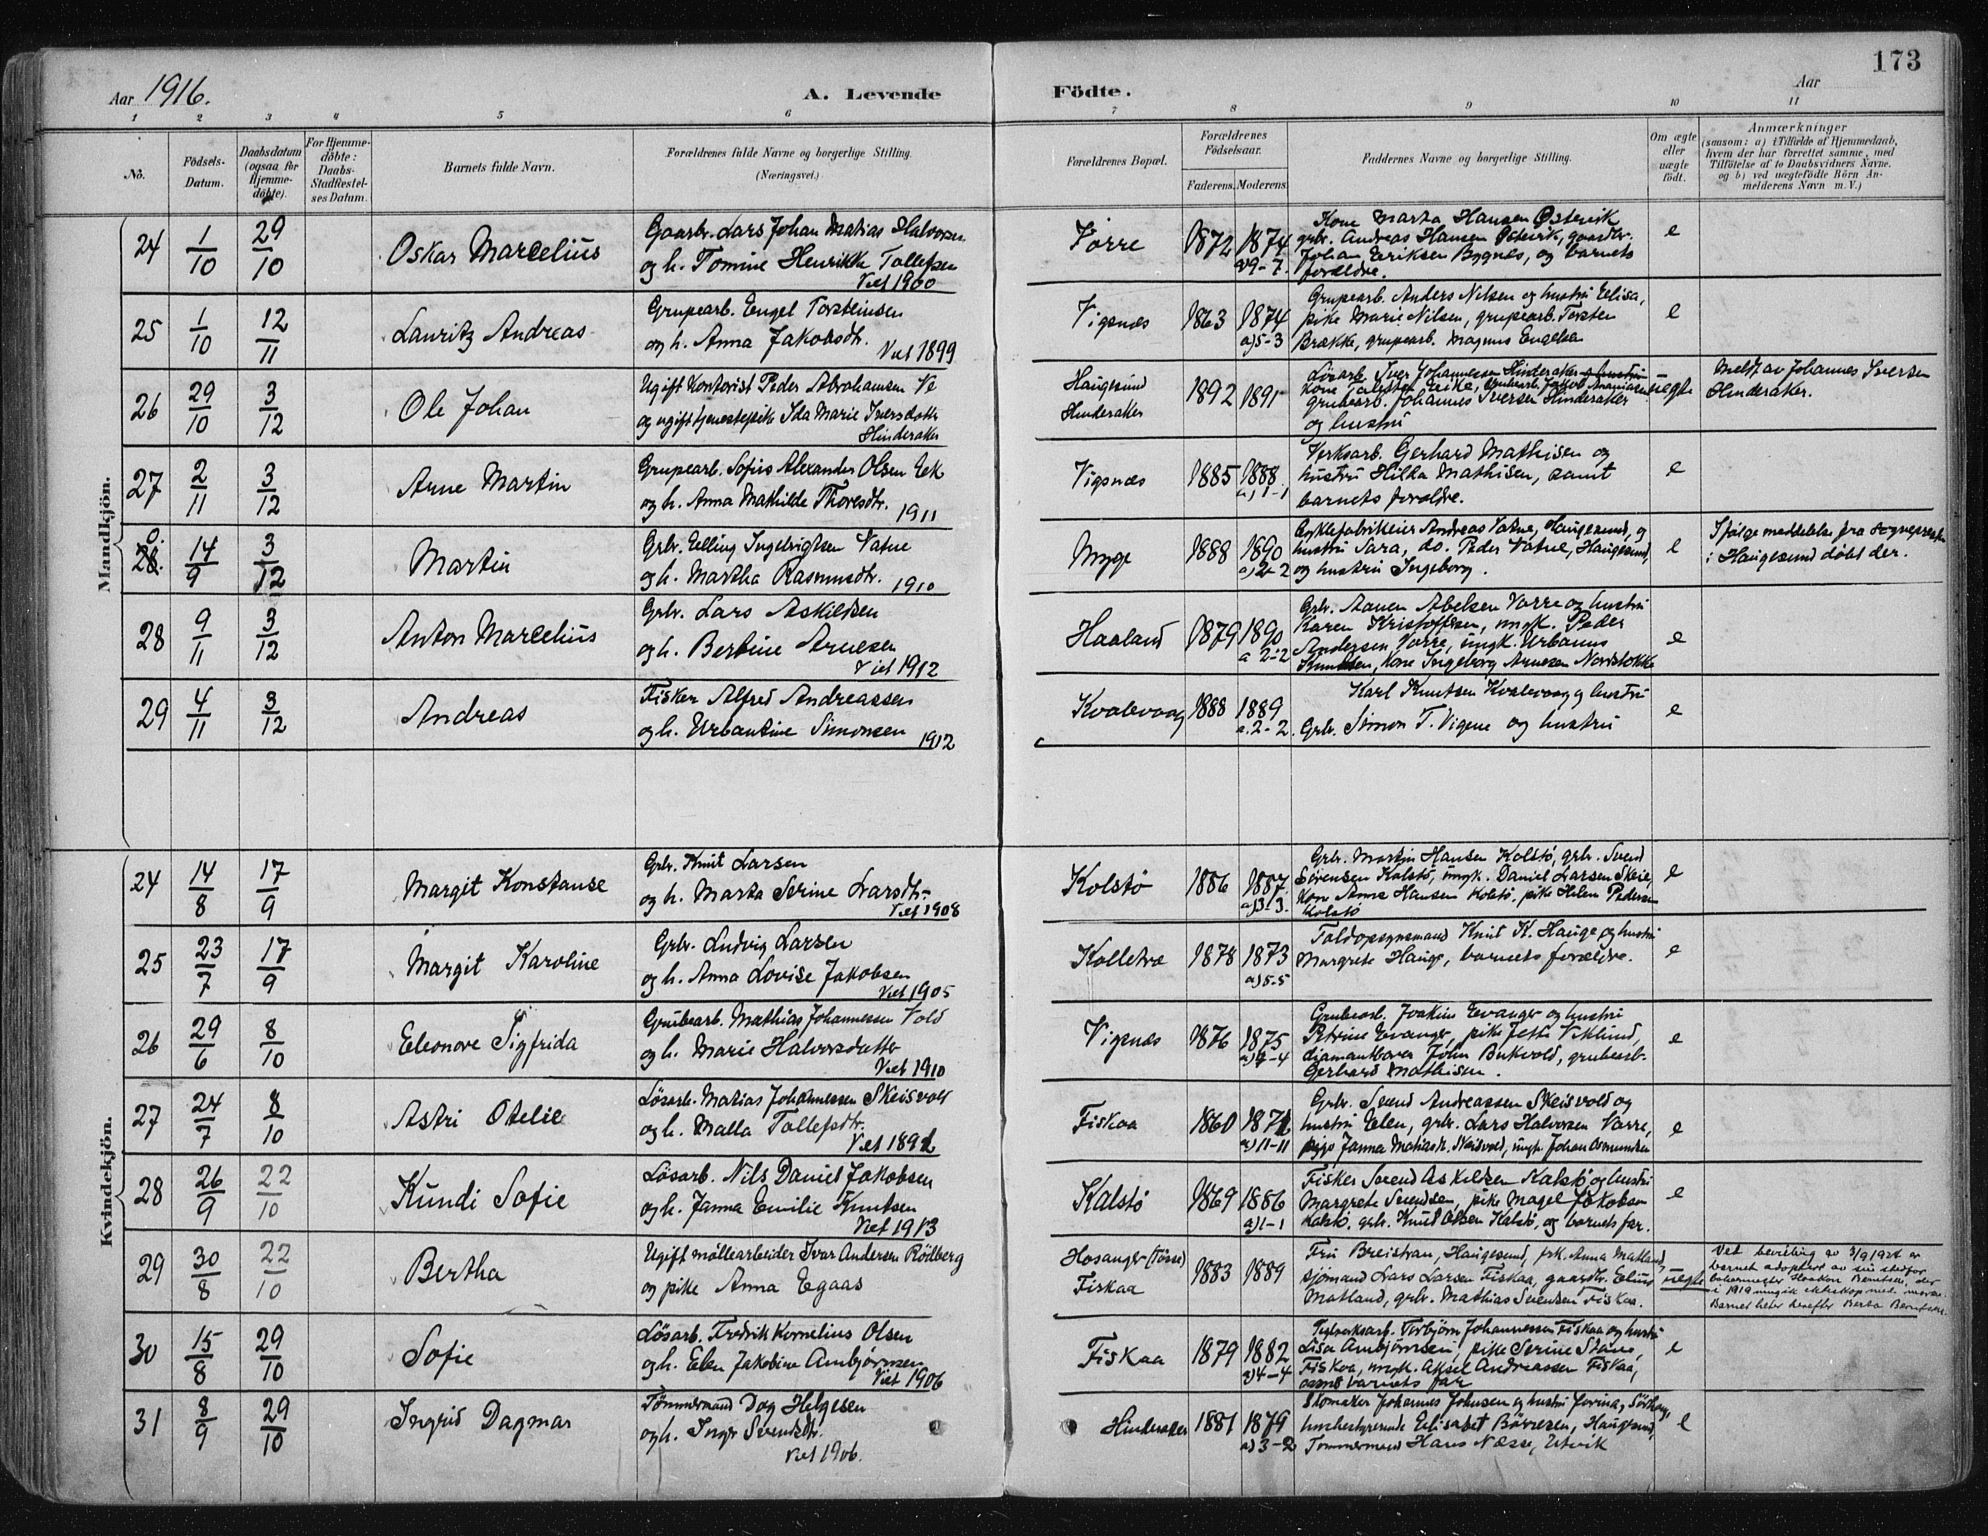 173
Aar 1916.
A. Levende Födte.
Aar
1 2 3 4 5 6 7 8 9 10 11
No.
Födsels-Datum.
Daabsdatum (ogsaa for Hjemme-döbte).
For Hjemme-döbte: Daabs-Stadfæstel-ses Datum.
Barnets fulde Navn.
Forældrenes fulde Navne og borgerlige Stilling. (Næringsvei.)
Forældrenes Bopæl.
Forældrenes Födselsaar.
Faderens. Moderens.
Faddernes Navne og borgerlige Stilling.
Om ægte eller uægte födt.
Anmærkninger (saasom: a) i Tilfælde af Hjemmedaab, hvem der har forrettet samme, med Tilföielse af to Daabsvidners Navne. og b) ved uægtefödte Börn An-melderens Navn m. V.)
Mandkjön.
24 1/10 29/10 Oskar Marcelius
Gaarbr. Lars Johan Matias Halvorsen
og h. Tomine Henrikke Tollefsen
Viet 1900
Førre 1872 1874
Kone Marta Hansen Østevik
grbr. Andreas Hansen Østevik, gaardbr.
Johan Eriksen Bygnes, og barnets
forældre.
e
25 1/10 12/11 Lauritz Andreas
Grupearb. Engel Torsteinsen
og h. Anna Jakobsdtr.
Viet 1899
Vigsnes 1863 1874
a) 5-3
Grupearb. Anders Nilsen og hustru Elisa,
pike Marie Nilsen, grupearb. Torsten
Brække, grupearb. Magnus Engelsen
e
26 29/10 3/12 Ole Johan
Ugift Kontorist Peder Abrahamsen Ve
og ugift tjenestepike Ida Marie Iversdatter
Hinderaker
Haugesund
Hinderaker
1892 1891
Løsarb. Iver Johannesen Hinderaker og hustru
grubearb. Johannes Iversen Hinderaker
og hustru
uegte
Meldt av Johannes Iversen
Hinderaker.
27 2/11 3/12 Arne Martin
Grupearb. Sofus Alexander Olsen Eek
og h. Anna Mathilde Thoresdtr.
1911
Vigsnes 1885 1888
a) 1-1
Verksarb. Gerhard Mathisen og
hustru Hilda Mathisen, samt
barnets forældre.
e
28. 14/9 3/12 Martin
Grbr. Elling Ingebrigtsen Vatne
og h. Martha Rasmusdtr.
1910
Myge 1888 1890
a) 2-2
Andreas Vatne, Haugesund, og
hustru Sara, do. Peder Vatne, Haugesund,
og hustru Ingeborg.
e
Ifølge meddelelse fra sognepresten
i Haugesund døbt der.
28 9/11 3/12 Anton Marcelius
Grbr. Lars Askildsen
og h. Bertine Arnesen
Viet 1912
Haaland 1879 1890
a 2-2
Grbr. Aanen Abelsen Vorre og hustru
Karen Kristoffersen, ungk. Peder
Andersen Vorre, ungk. Urbanus
Knudsen, Kone Ingeborg Arnesen Nordstokke
e
29 4/11 3/12 Andreas
Fisker Alfred Andreassen
og h. Urbantine Simonsen
1912
Kvalevaag 1888 1889
a. 2-2.
Karl Knutsen Kvalevaag og hustru
Grbr. Simon T. Vigene og hustru
e
Kvindekjön.
24 14/8 17/9 Margit Konstanse
Grbr. Knut Larsen
og h. Marta Serine Larsdtr.
Viet 1908
Kolstø 1886 1887
a) 3-3.
Grbr. Martin Hansen Kolstö, grbr. Svend
Sörensen Kolstö, ungk. Daniel Larsen Skeie,
kone Anne Hansen Kolstö, pike Helen Pedersen
Kolstö
e
25 23/7 17/9 Margit Karoline
Grbr. Ludvig Larsen
og h. Anna Lovise Jakobsen
Viet 1905
Kolletvæ 1878 1873
a) 5-5
Toldopsynsmand Knut K. Hauge og hustru
Margrete Hauge, barnets forældre.
e
26 29/6 8/10 Eleonore Sigfrida
Grubearb. Mathias Johannessen Vold
og h. Marie Halvorsdatter
Viet 1910
Vigsnæs 1876 1875
Grubearb. Joakim Evanger og hustru
Petrine Evanger, pike Jetta Viklund,
diamantborer John Bukvold, grubearb.
Gerhard Mathisen.
e
27 24/7 8/10 Astri Otelie
Løsarb. Matias Johannessen Skeisvoll
og h. Malla Tollefsdtr.
Fiskaa 1860 1871
a) 11-11
Grbr. Svend Andreassen Skeisvold og
hustru Elen, grbr. Lars Halvorsen Vorre,
pige Janna Matiasdtr. Skeisvold, ungk. Johan Osmundsen
e
28 26/9 22/10 Kundi Sofie
Løsarb. Nils Daniel Jakobsen
og h. Janna Emilie Knutsen
Viet 1913
Kalstø 1869 1886
a) 1-1
Fisker Svend Askildsen Kalstø og hustru
Margrete Svendsen, pike Magel Jakobsen
Kalstø, grbr. Knut Olsen Kalstø, og barnets far.
e
29 30/8 22/10 Bertha
Ugift møllearbeider Ivar Andersen Rödberg
og pike Anna Egaas
Hosanger
Fiskaa
1883 1889
Fru Breistran, Haugesund, frk. Anna Matland,
sjømand Lars Larsen Fiskaa, gaardbr. Elias
Matland, grbr. Mathias Svendsen Fiskaa.
uegte
Ved bevilling av 3/9 1924 er
barnet adoptert av sin stefar
Haakon Berntsen, der
i 1919 inngik ekteskap med moren.
Barnet heter herefter Berta Berntsen.
30 15/8 29/10 Sofie
Løsarb. Fredrik Kornelius Olsen
og h. Elen Jakobine Ambjørnsen
Viet 1906
Fiskaa 1879 1882
a) 4-4
Teglverksarb. Torbjørn Johannessen Fiskaa og hustru
Lisa Ambjørnsen, pike Serine Staine,
Fiskaa, ungk. Aksel Andreassen Fiskaa,
samt barnets far
e
31 8/9 29/10 Ingrid Dagmar
Tømmermand Dag Helgesen
og h. Inger Svendsdtr.
Viet 1906.
Hinderaker 1881 1879
a) 3-2
Skomaker Johannes Johnsen og hustru Jorina,
husbestyrerinde Elisabet Børresen, Haugesund,
Tømmermand Hans Næsse, Utvik
e